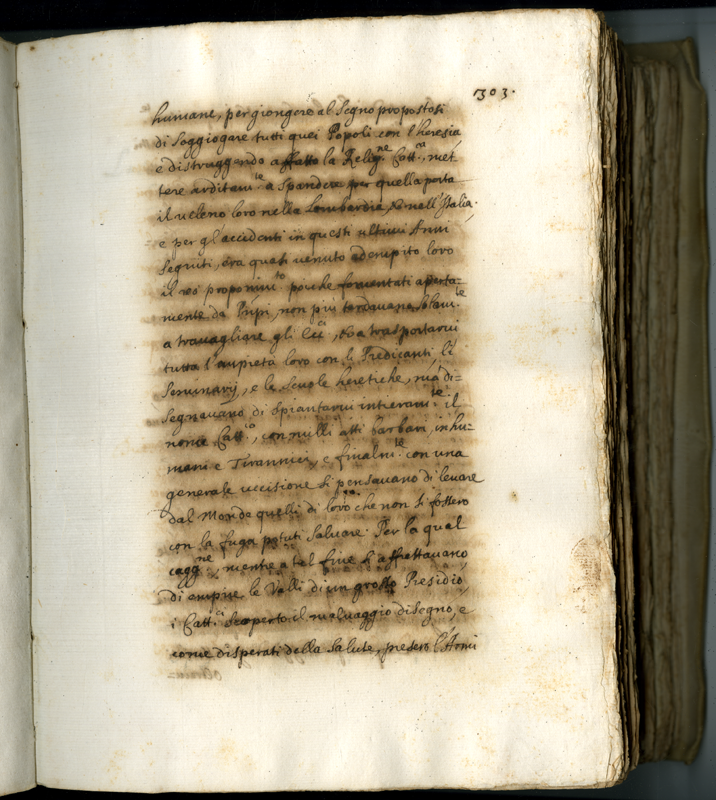 303.
humane, per giongere al Segno propostosi
di Soggiogare tutti quei Popoli con l'heresia
e distruggendo affatto la Relig.ne Catt.ca, met=
tere arditam.te a Spandere per quella porta
il veleno loro nella Lombardia, & nell'Italia.
e per gl'accidenti in questi ultimi Anni
Seguiti, era quasi venuto adempito loro
il reo proponim.to poiche fomentati aperta=
mente da Prñpi, non più tardavano Solam.te
a travagliare gli Ecc.ci, & a trasportarvi
tutta l'impietà loro con li Predicanti, li
Seminarij, e le Scuole heretiche, mà di=
segnavano di Spiantarvi intieram.te il
nome Catt.co, con mille atti Barbari, inhu=
mani e Tirannici, e finalm.te con una
generale uccisione si pensavano di levare
dal Mondo quelli di loro che non si fossero
con la fuga potuti Salvare. Per la qual
cagg.ne, mentre a tal fine s'affrettavano
di empire le Valli di un grosso Presidio,
i Catt.ci scoperto il malvaggio disegno, e
come disperati della Salute, presero l'Armi